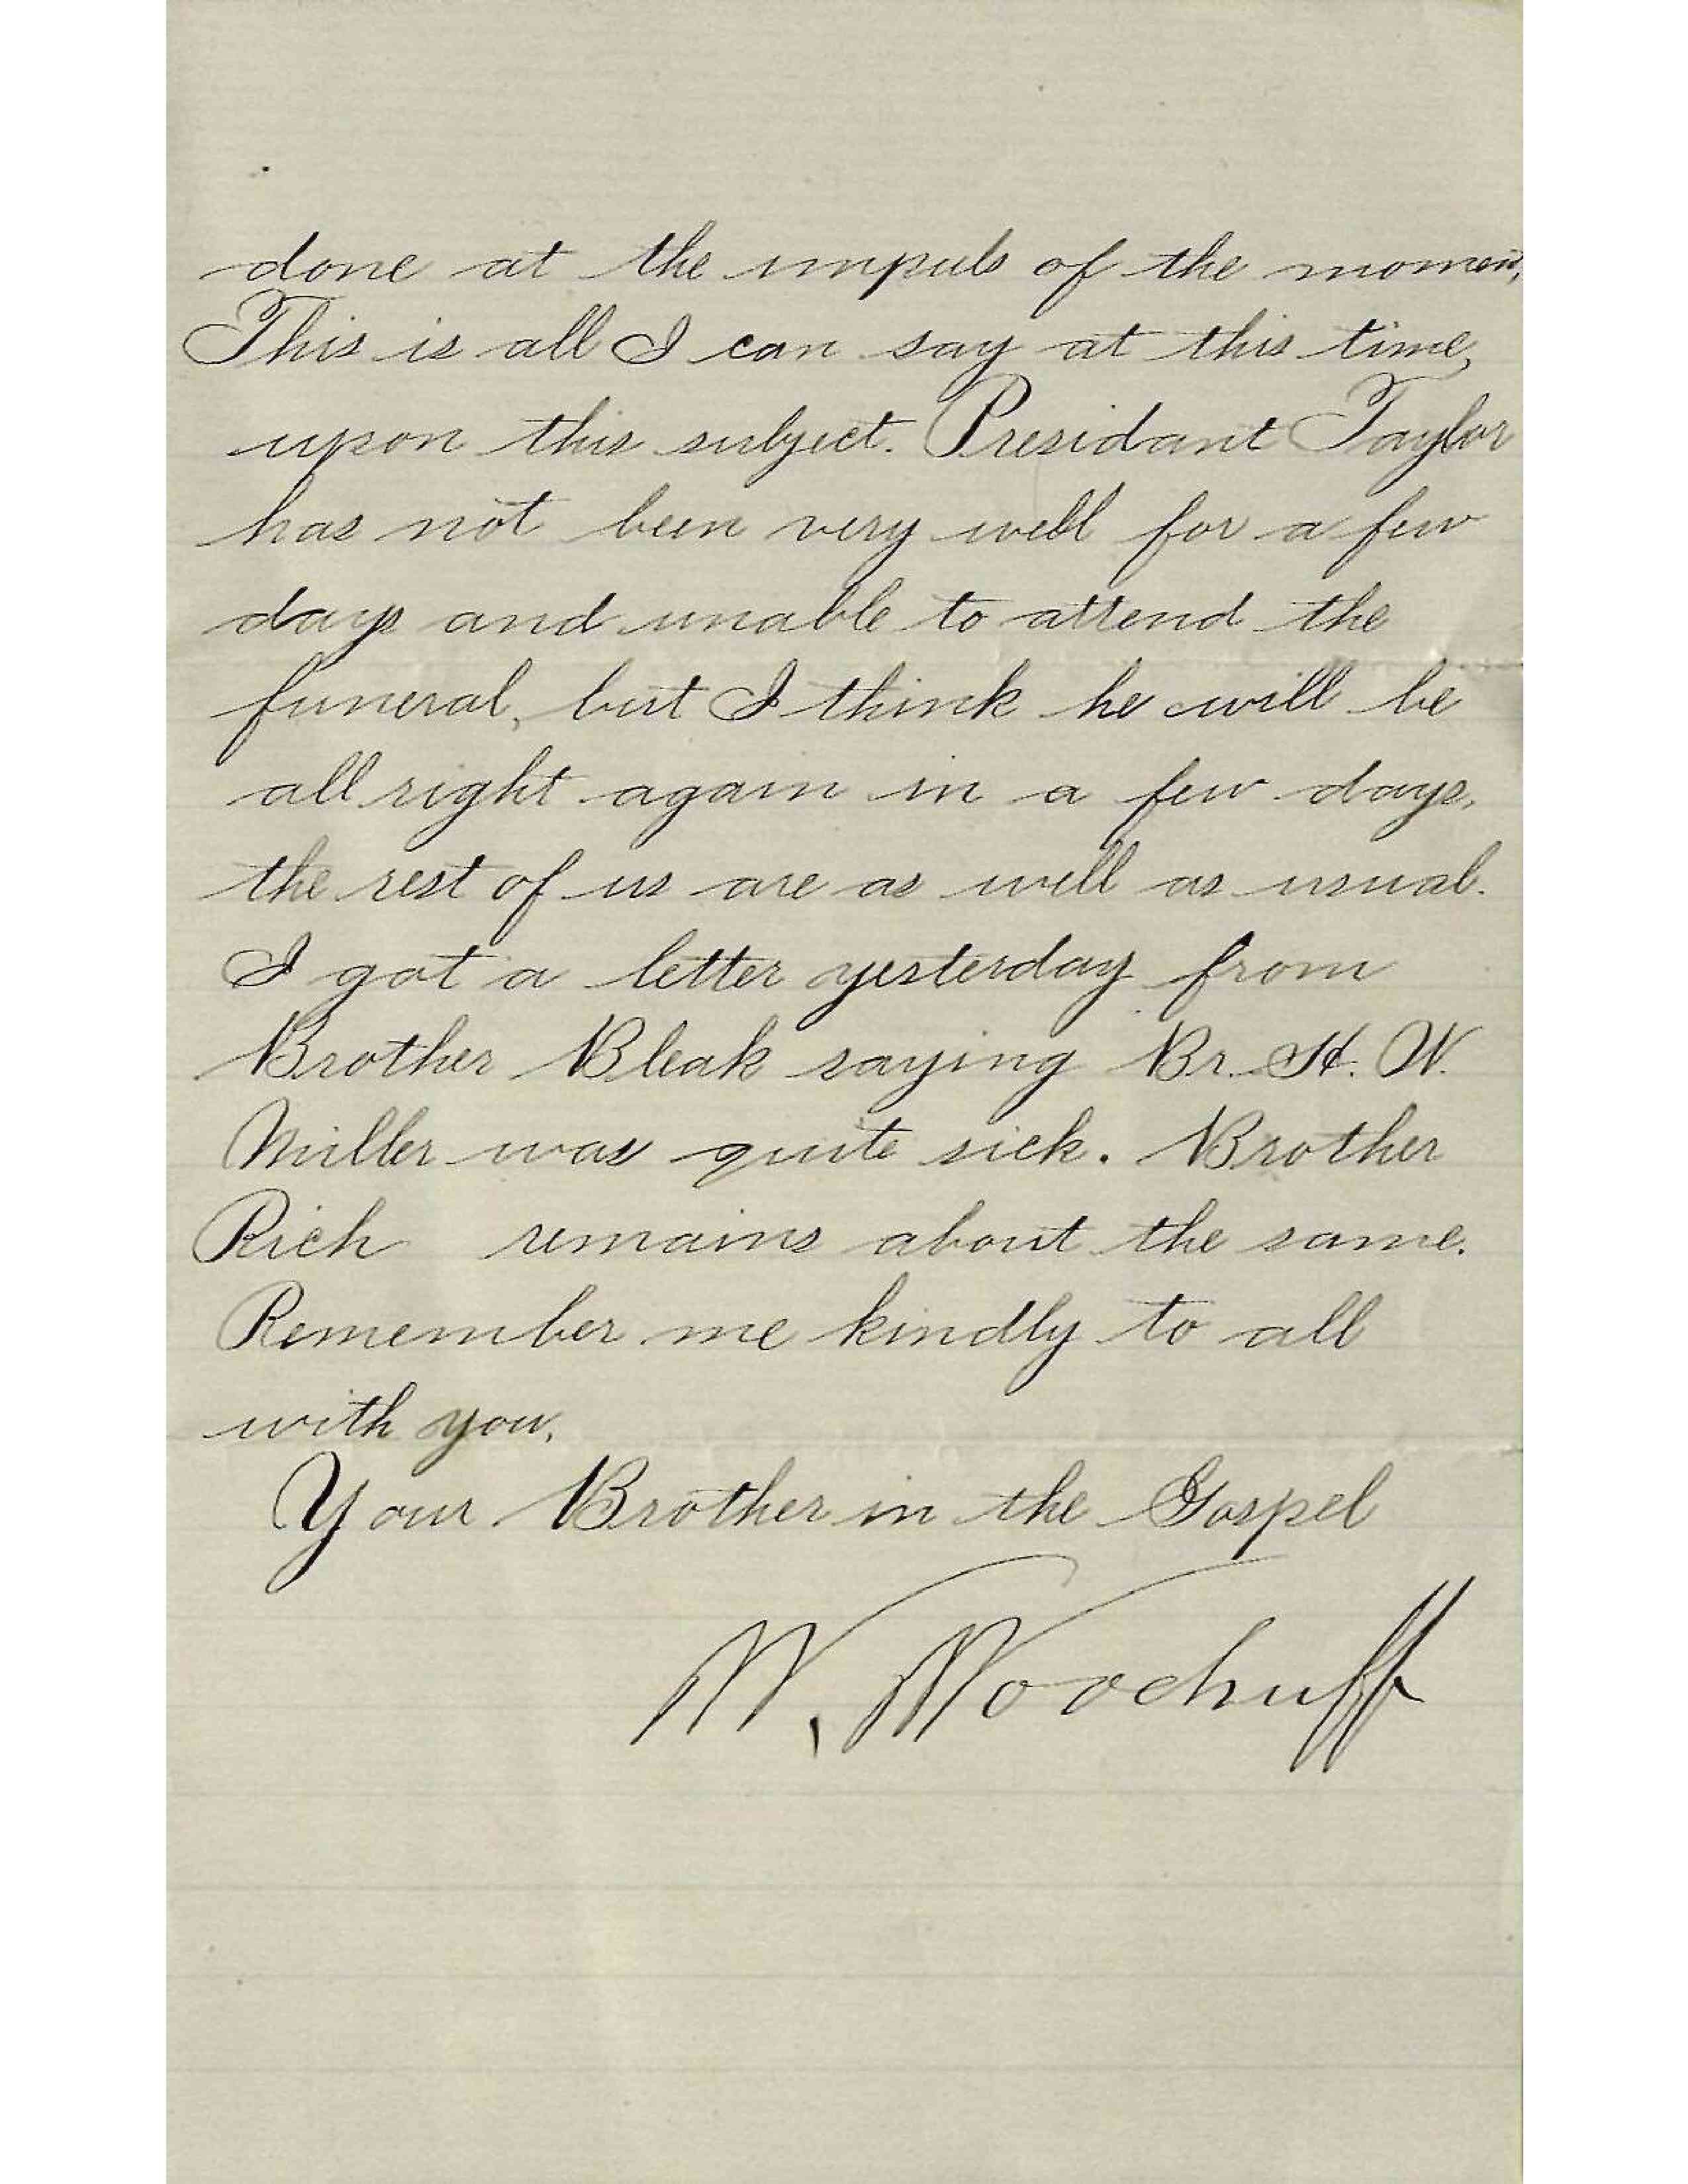 done at the impuls of the moment,
This is all I can say at this time,
upon this subject. Presidant Taylor
has not been very well for a few
days and unable to attend the
funeral, but I think he will be
all right again in a few days,
the rest of us are as well as usual.
I got a letter yesterday from
Brother Bleak saying Br. H. W.
Miller was quite sick. Brother
Rich remains about the same.
Remember me kindly to all
with you,
Your Brother in the Gospel
W. Woodruff